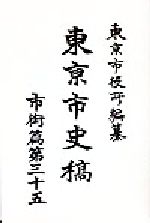 東京市役所編纂
東京市史稿
市街篇第三十五